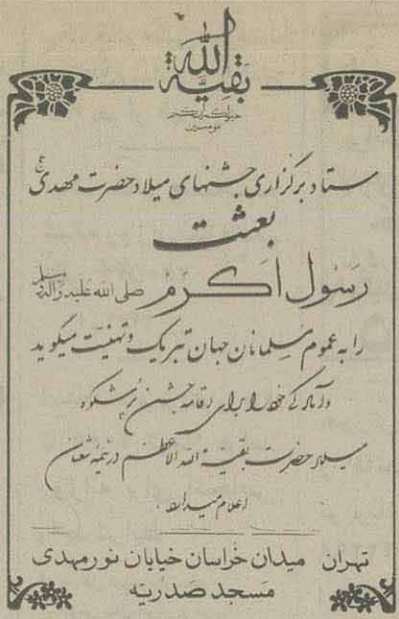 بقیة الله
خیر لکم ان کنتم
مومنین
ستاد برگزاری جشنهای میلاد حضرت مهدی عج
بعثت
رسول اکرم صلی الله علیه و آله وسلم
را به عموم مسلمانان جهان تبریک و تهنیت میگوید
و آمادگی خود را برای اقامه جشن پرشکوه
میلاد حضرت بقیة الله الاعظم در نیمه شعبان
اعلام میدارد.
تهران میدان خراسان خیابان نورمهدی
مسجد صدریه